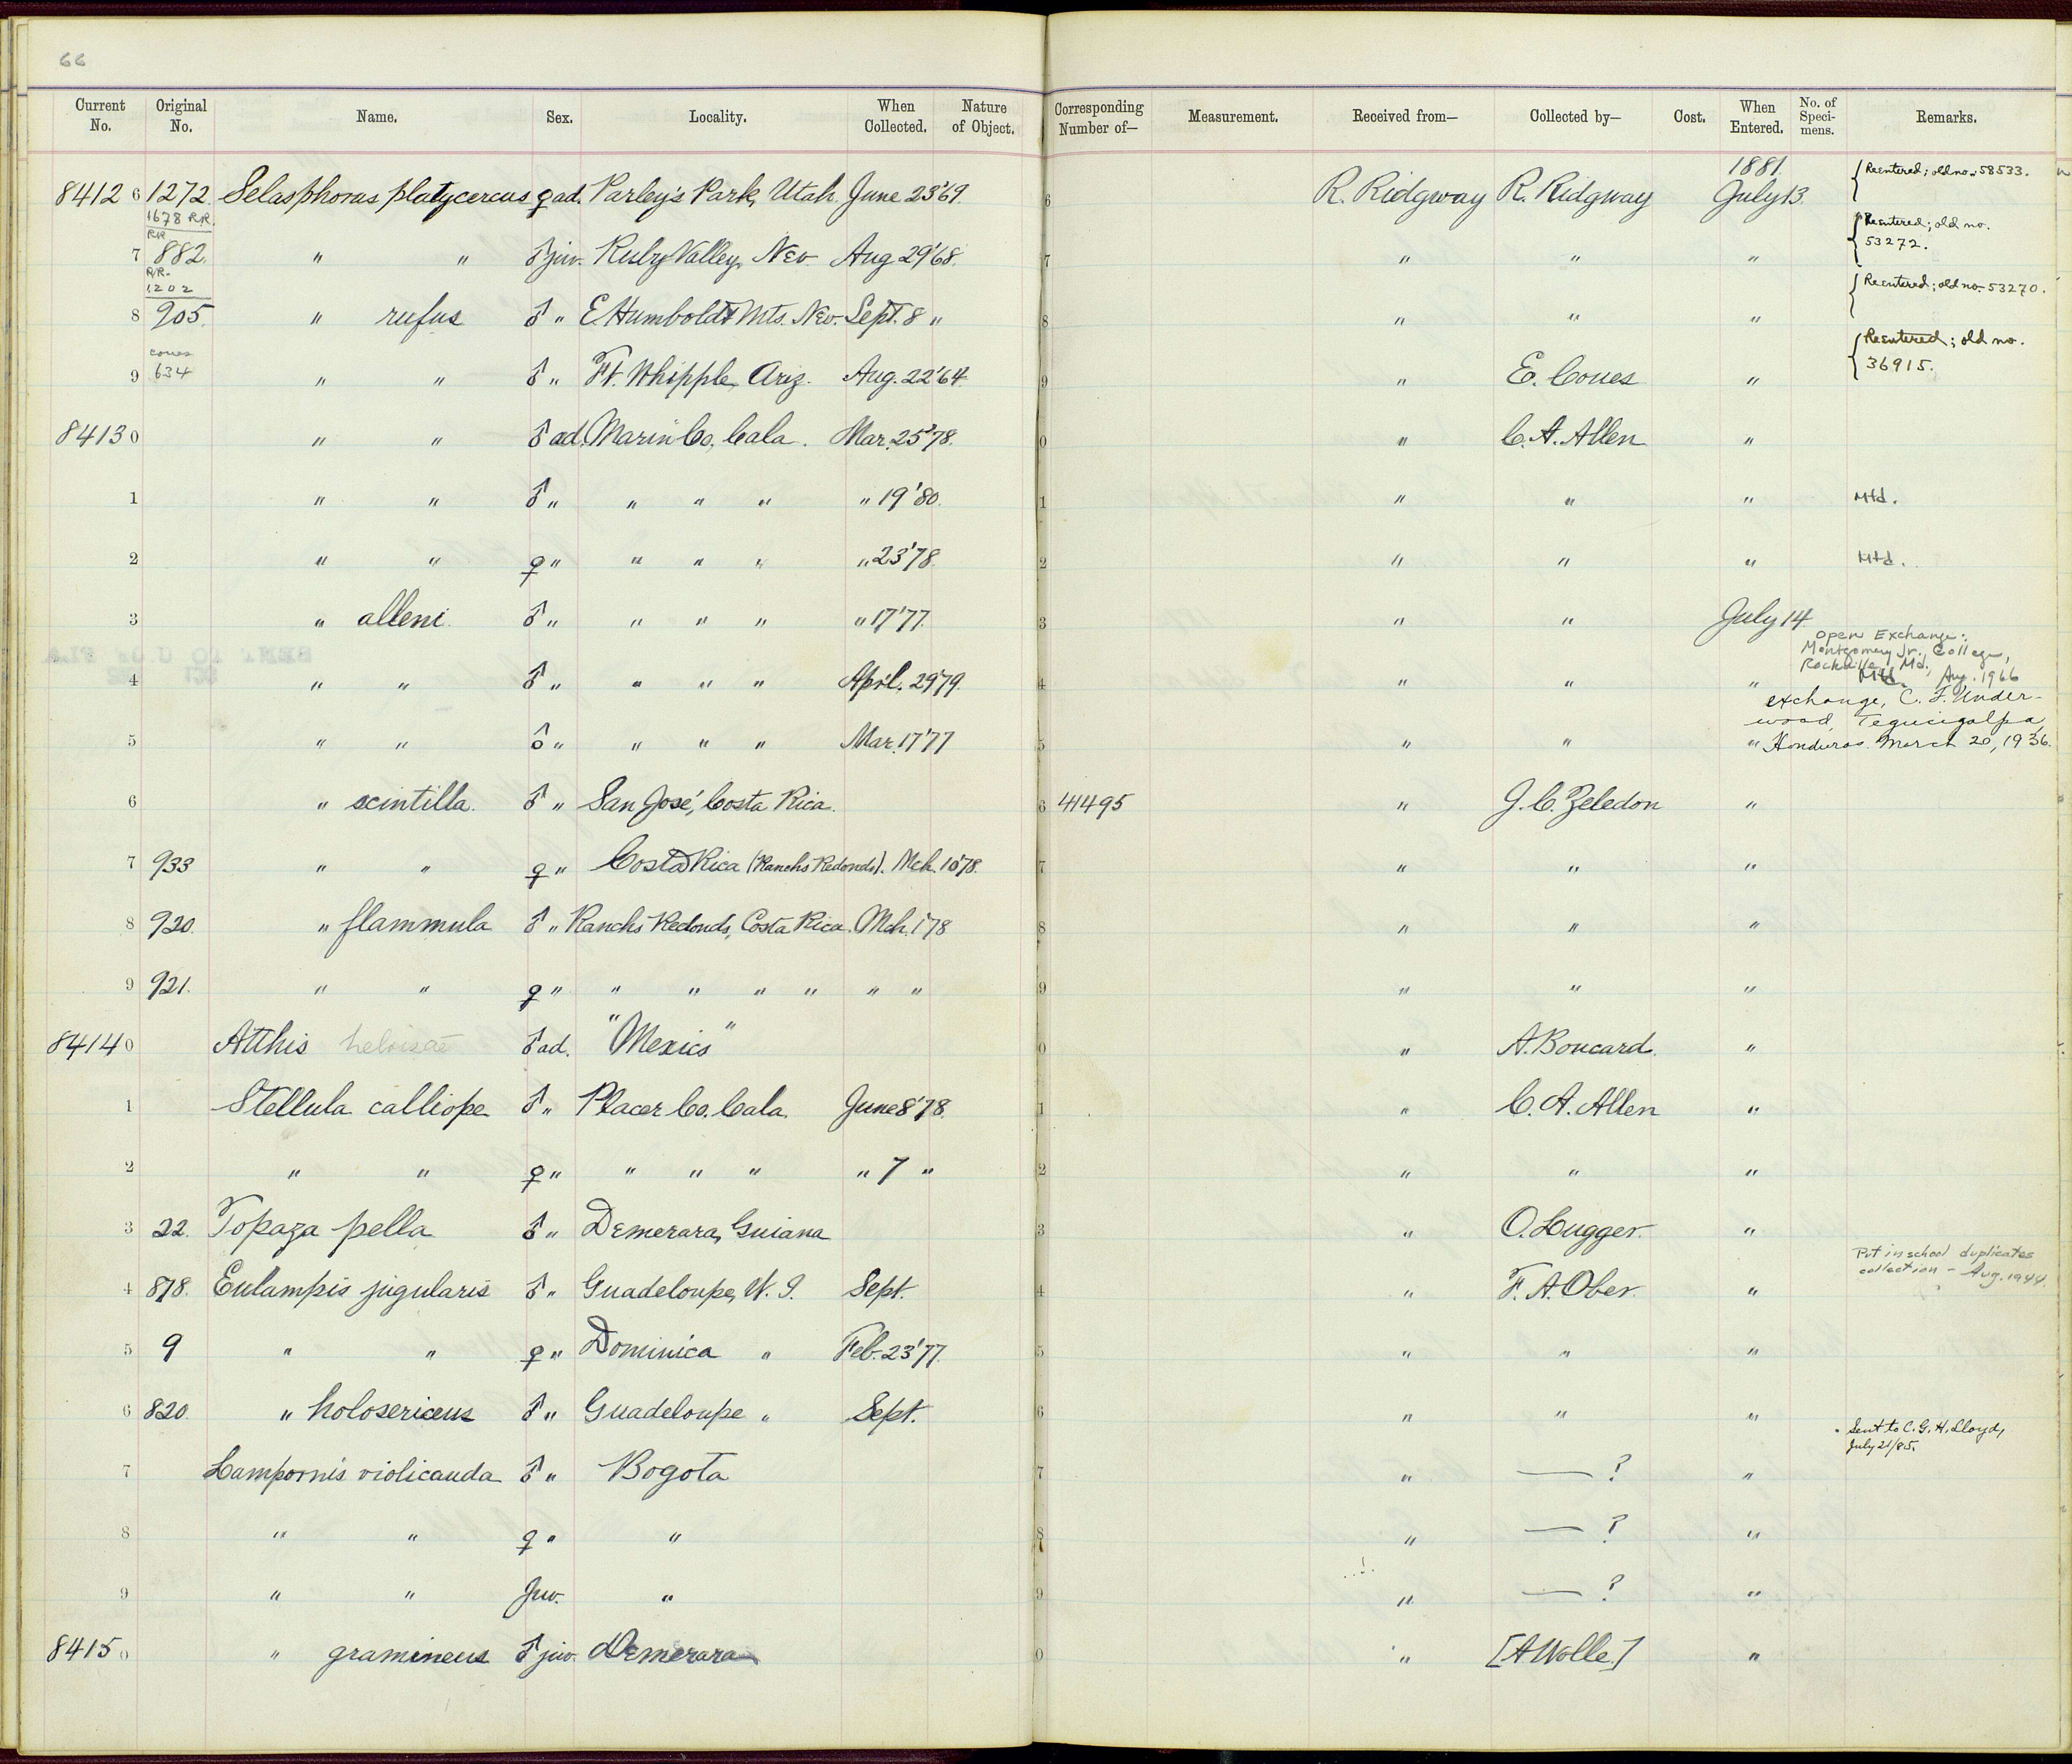 66
Current No. Original No. Name. Sex. Locality. When Collected. Nature of Object. Corresponding Number of— Measurement. Received from— Collected by— Cost. When Entered. No. of Specimens. Remarks.
84126 1272 1678 R.R. Selasphorus platycercus ♀ ad. Parley's Park, Utah. June 23'69. 6 R. Ridgway R. Ridgway 1881. July 13. {Reentered; old no. 58533.
7 RR 882. " " ♂ juv. Ruby Valley, Nev. Aug 29'68. 7 " " " {Reentered; old no. 53272.
8 R.R. 1202 905. " rufus ♂ " E. Humboldt Mts. Nev. Sept. 8 " 8 " " " {Reentered; old no. 53270.
9 coues 634 " " ♂ " Ft. Whipple, Ariz. Aug. 22'64 9 " E. Coues " {Reentered; old no. 36915.
84130 " " ♂ ad. Marin Co., Cala. Mar. 25'78. 0 " C. A. Allen "
1 " " ♂ " " " " " 19'80. 1 " " " Mtd.
2 " " ♀ " " " " " 23'78. 2 " " " Mtd.
3 " alleni. ♂ " " " " " 17'77. 3 " " July 14.
4 " " ♂ " " " " April. 29'79. 4 " " " Open Exchange: Montgomery Jr. College, Rockville, Md., Aug. 1966 Mtd.
5 " " ♂ " " " " Mar. 17'77 5 " " " exchange, C. F. Underwood, Tegucigalpa, Honduras. March 20, 1936.
6 " scintilla. ♂ " San José, Costa Rica. 6 41495 " J. C. Zeledon "
7 933 " " ♀ " Costa Rica (Rancho Redondo). Mch. 10'78. 7 " " "
8 920. " flammula ♂ " Rancho Redondo, Costa Rica. Mch. 1'78 8 " " "
9 921. " " ♀ " " " " " " " 9 " " "
84140 Atthis heloisae ♂ ad. "Mexico" 0 " A. Boucard. "
1 Stellula calliope ♂ " Placer Co. Cala. June 8'78. 1 " C. A. Allen "
2 " " ♀ " " " " " 7 " 2 " " "
3 22. Topaza pella ♂ " Demerara, Guiana 3 " O. Lugger. "
4 878. Eulampis jugularis ♂ " Guadeloupe, W. I. Sept. 4 " F. A. Ober. " Put in school duplicates collection - Aug. 1944.
5 9 " " ♀ " Dominica " Feb. 23'77. 5 " " "
6 820. " holosericeus ♂ " Guadeloupe " Sept. 6 " " "
7 Lampornis violicauda ♂ " Bogota 7 " — ? " Sent to C. G. H. Lloyd, July 21/85.
8 " " ♀ " " 8 " — ? "
9 " " Juv. " 9 " — ? "
84150 " gramineus ♂ juv. Demerara 0 " [A Wolle] "